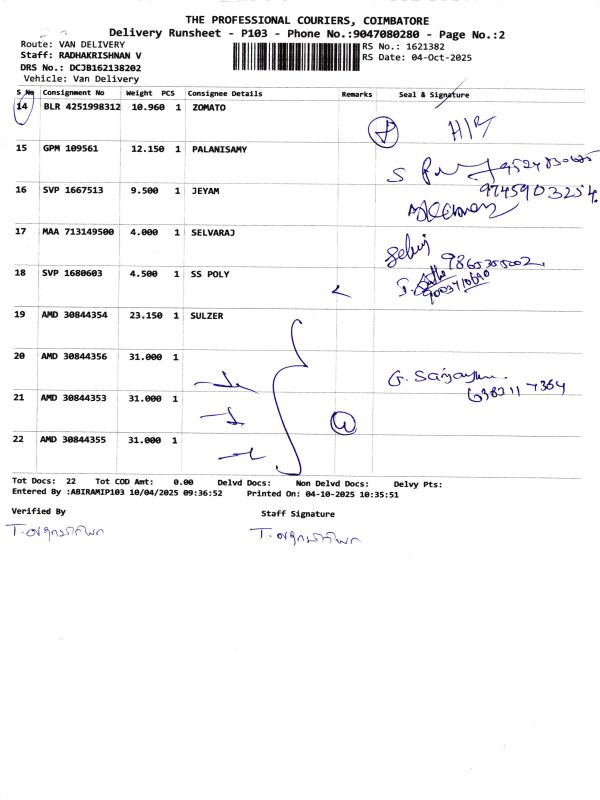 THE PROFESSIONAL COURIERS, COIMBATORE
Delivery Runsheet - P103 - Phone No.:9047080280 - Page No.:2
Route: VAN DELIVERY
RS No.: 1621382
Staff: RADHAKRISHNAN V
RS Date: 04-Oct-2025
DRS No.: DCJB162138202
Vehicle: Van Delivery
S No Consignment No Weight PCS Consignee Details Remarks Seal & Signature
14 BLR 4251998312 10.960 1 ZOMATO
H/R
15 GPM 109561 12.150 1 PALANISAMY
16 SVP 1667513 9.500 1 JEYAM
9745903254.
17 MAA 713149500 4.000 1 SELVARAJ
18 SVP 1680603 4.500 1 SS POLY
19 AMD 30844354 23.150 1 SULZER
20 AMD 30844356 31.000 1
21 AMD 30844353 31.000 1
4
22 AMD 30844355 31.000 1
Tot Docs: 22 Tot COD Amt: 0.00 Delvd Docs: Non Delvd Docs: Delvy Pts:
Entered By :ABIRAMIP103 10/04/2025 09:36:52 Printed On: 04-10-2025 10:35:51
Verified By Staff Signature